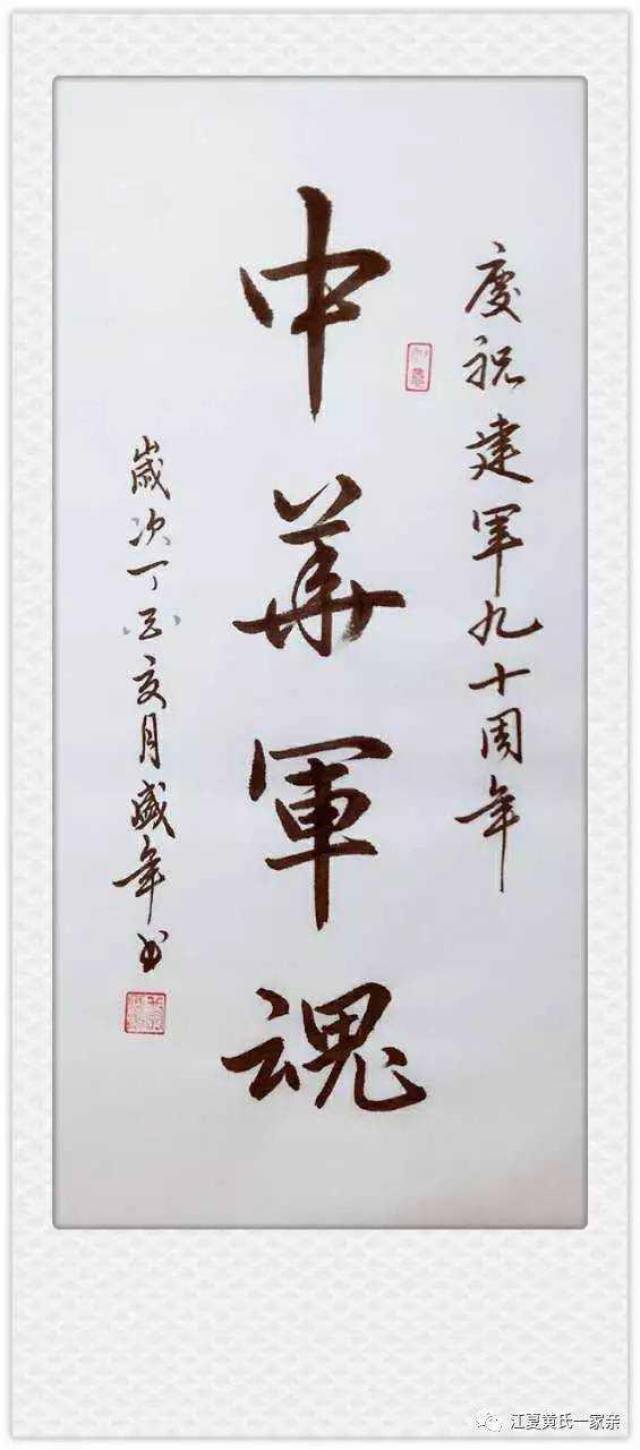 慶祝建軍九十周年
中華軍魂
歲次丁酉亥月盛年书
江夏黄氏一家亲